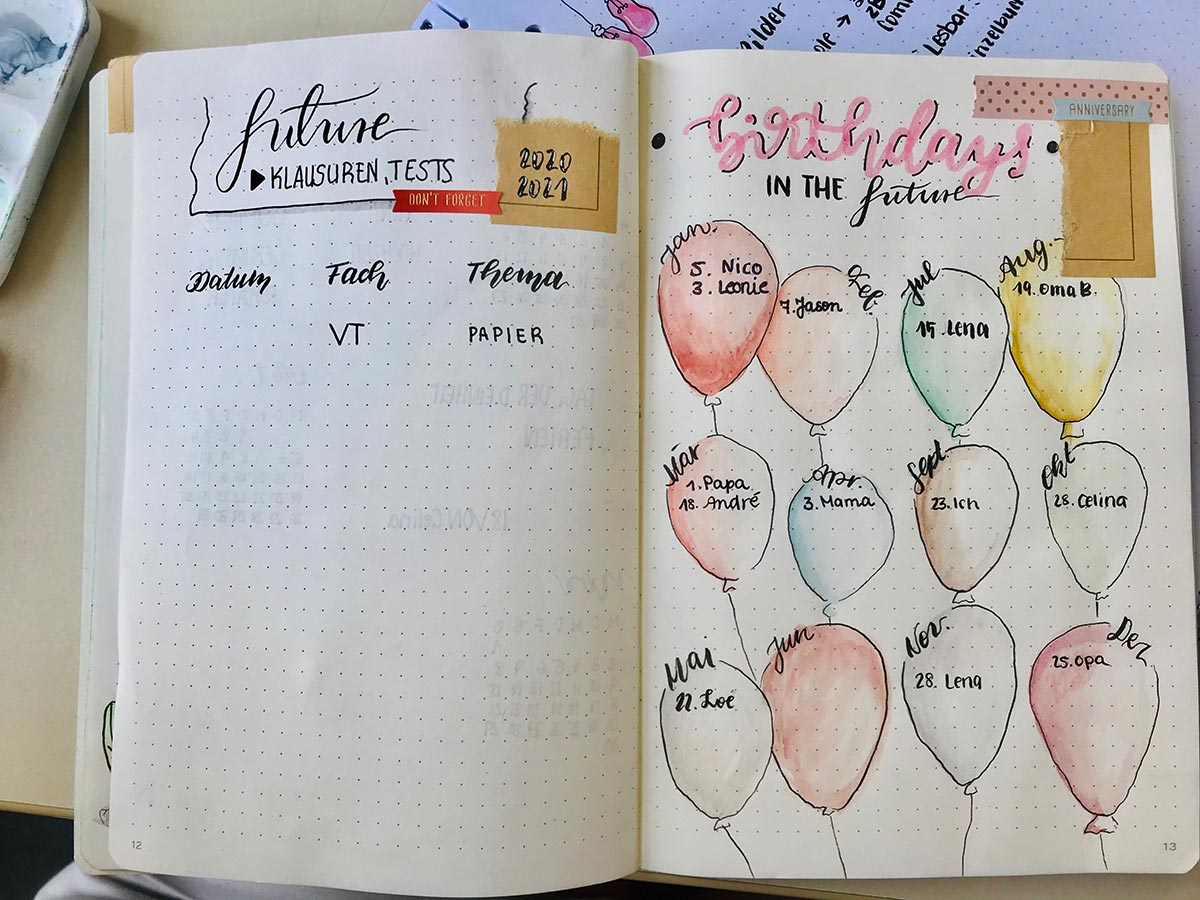 future
▶ KLAUSUREN, TESTS
2020
2021
DON'T FORGET
Datum Fach Thema
VT PAPIER
12
Lesbar
birthdays
IN THE future
ANNIVERSARY
Jan.
5. Nico
3. Leonie
Feb.
7. Jason
Jul
15. Lena
Aug.
19. Oma B.
Mar
1. Papa
18. André
Apr.
3. Mama
Sept.
23. Ich
Okt
28. Celina
Mai
Jun
Nov.
28. Lena
Dez
25. Opa
13